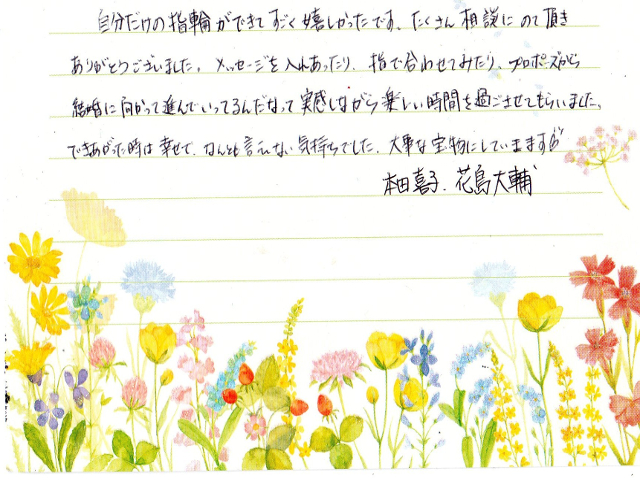 自分だけの指輪ができてすごく嬉しかったです、たくさん相談にのて頂き
ありがとうございました。メッセージを入れあったり、指で合わせてみたり、プロポーズから
結婚に向かって進んでいってるんだなって実感しながら楽しい時間を過ごさせてもらいました。
できあがった時は幸せで、なんとも言えない気持ちでした、大事な宝物にしていきます
本田喜子、花島大輔